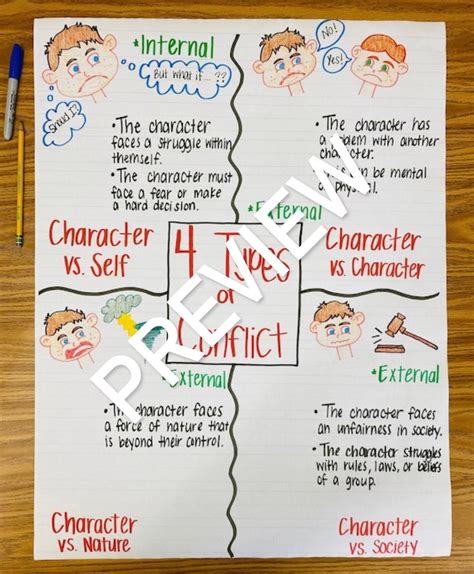 *Internal
But what if...??
Should I?
• The character
faces a struggle within
themself.
• The character must
face a fear or make
a hard decision.
Character
vs. Self
No!
Yes!
• The character has
a problem with another
character.
can be mental
or physical.
*External
Character
vs. Character
4 Types
of
Conflict
PREVIEW
*External
• The character faces
a force of nature that
is beyond their control.
Character
vs. Nature
*External
• The character faces an
unfairness in society.
• The character struggles
with rules, laws, or beliefs
of a group.
Character
vs. Society